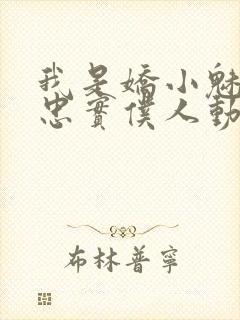 我是嬌小魅
忠實僕人動
布林普寧